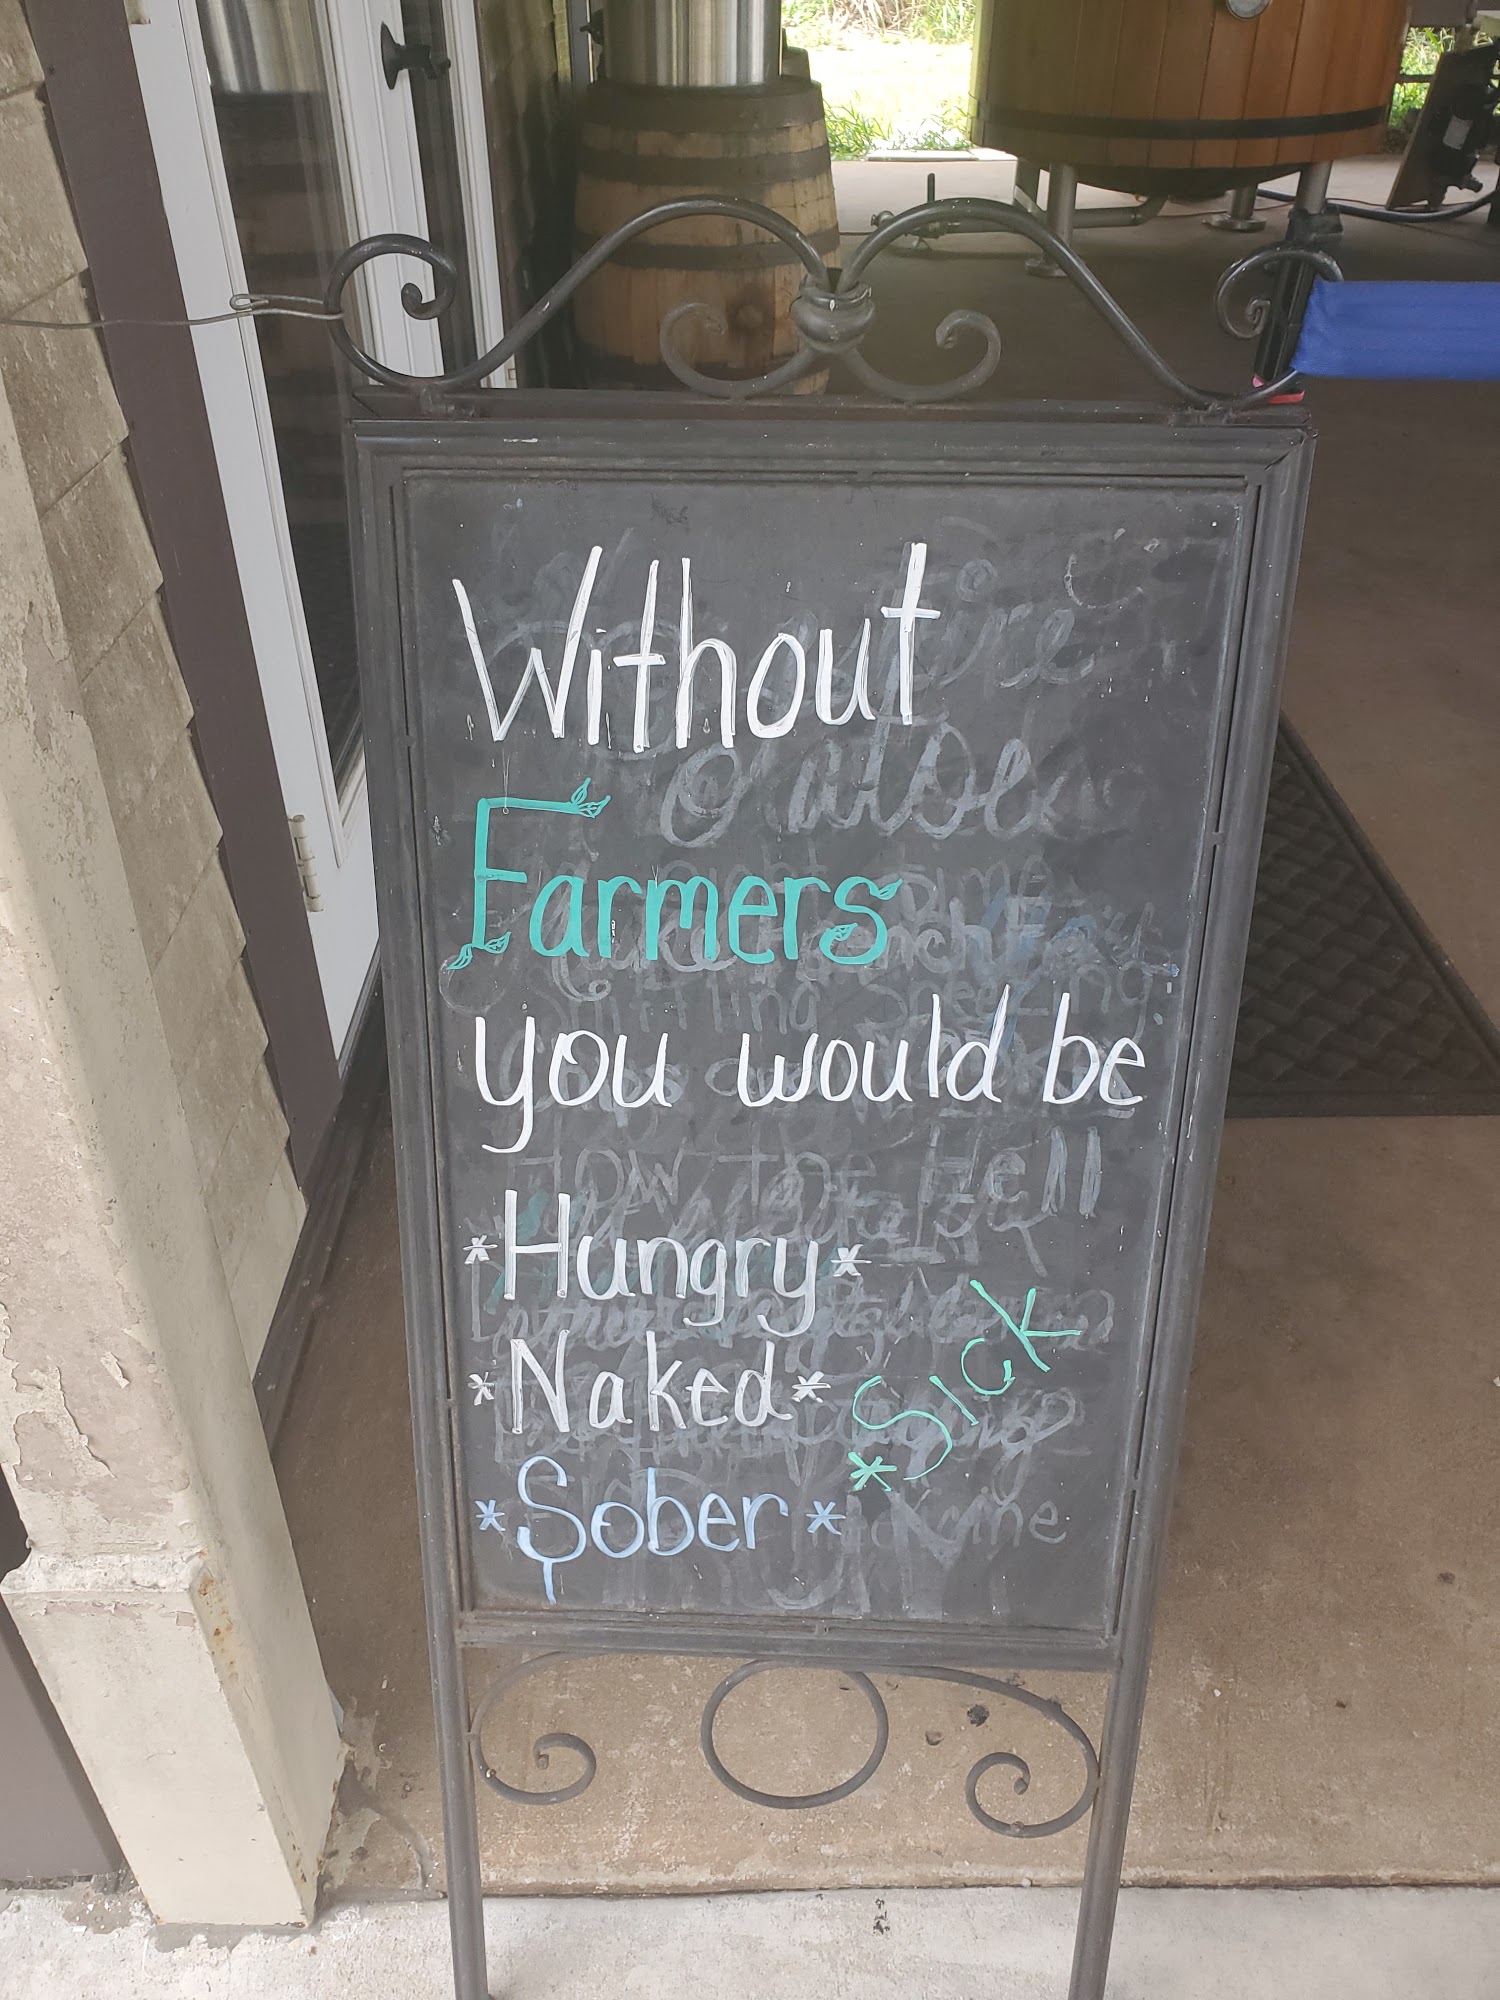 Without
Farmers
you would be
*Hungry*
*Naked*
*Sick
*Sober*